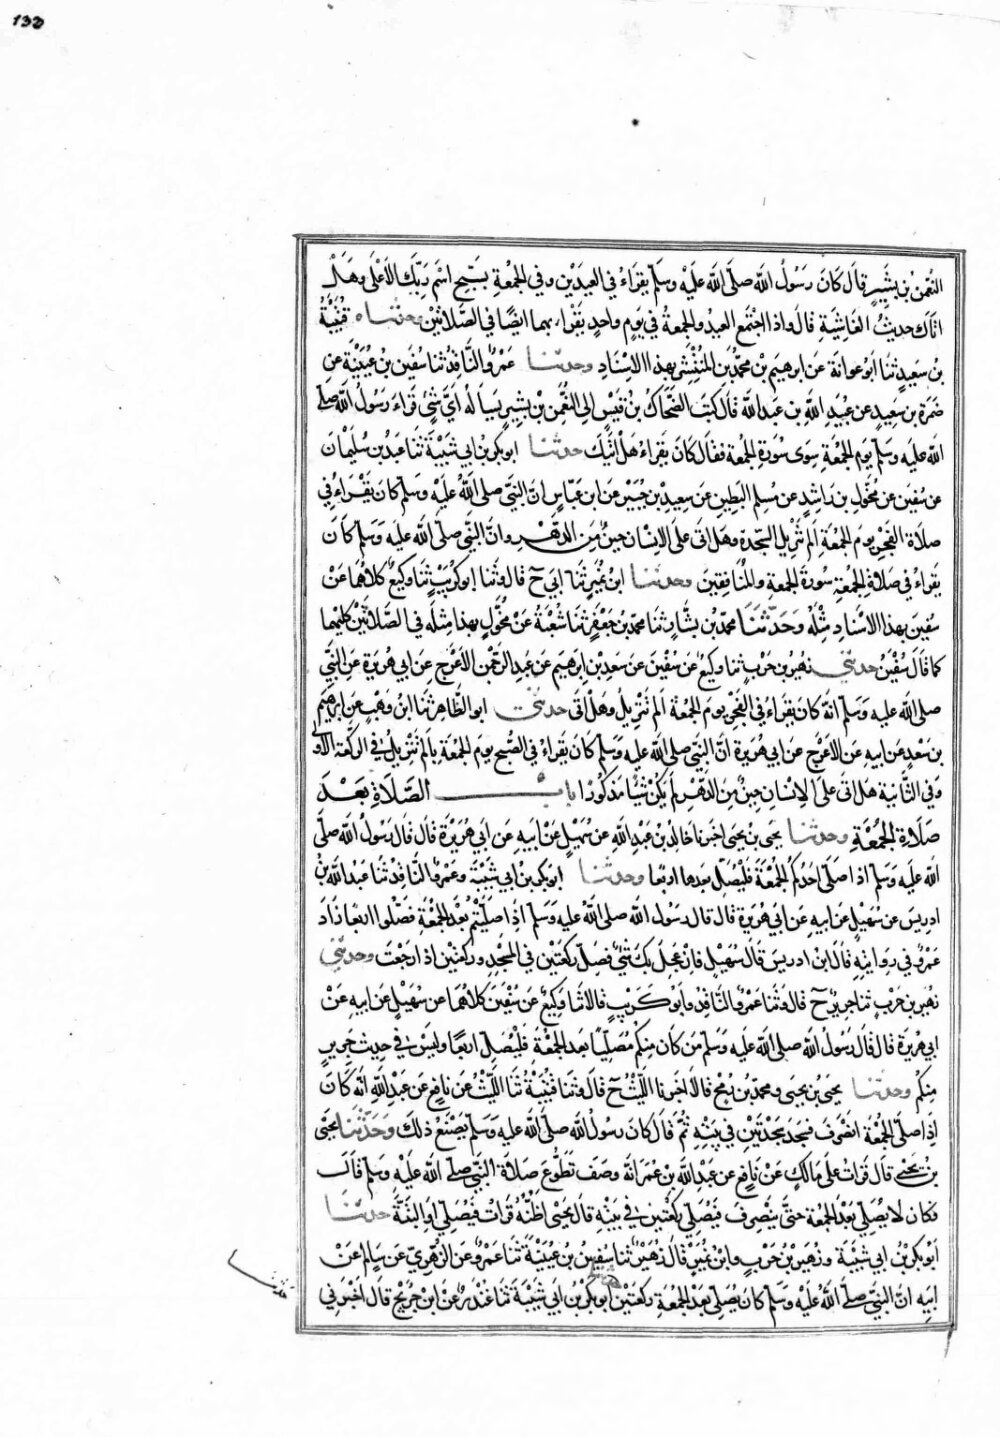 133
النعمن بن بشير قال كان رسول الله صلى الله عليه وسلم يقراء في العيدين وفي الجمعة بسبح اسم ربك الاعلى وهل
اتاك حديث الغاشية قال واذا اجتمع العيد والجمعة في يوم واحد يقراء بهما ايضا في الصلاتين وحدثناه قتيبة
بن سعيد ثنا ابو عوانة عن ابرهيم بن محمد بن المنتشر بهذا الاسناد وحدثنا عمرو الناقد ثنا سفين بن عيينة عن
ضمرة بن سعيد عن عبيد الله بن عبد الله قال كتب الضحاك بن قيس الى النعمن بن بشير يساله اي شئ قراء رسول الله صلى
الله عليه وسلم يوم الجمعة سوى سورة الجمعة فقال كان يقراء هل اتيك حدثنا ابو بكر بن ابي شيبة ثنا عبد بن سليمان
عن سفين عن مخول بن راشد عن مسلم البطين عن سعيد بن جبير عن ابن عباس ان النبي صلى الله عليه وسلم كان يقراء في
صلاة الفجر يوم الجمعة الم تنزيل السجدة وهل اتى على الانسان حين من الدهر وان النبي صلى الله عليه وسلم كان
يقراء في صلاة الجمعة سورة الجمعة والمنافقين وحدثنا ابن نمير ثنا ابي ح قال وثنا ابو كريب ثنا وكيع كلاهما عن
سفين بهذا الاسناد مثله وحدثنا محمد بن بشار ثنا محمد بن جعفر ثنا شعبة عن مخول بهذا مثله في الصلاتين كليهما
كما قال سفين حدثني زهير بن حرب ثنا وكيع عن سفين عن سعد بن ابرهيم عن عبد الرحمن الاعرج عن ابي هريرة عن النبي
صلى الله عليه وسلم انه كان يقراء في الفجر يوم الجمعة الم تنزيل وهل اتى حدثني ابو الطاهر ثنا ابن وهب عن ابرهيم
بن سعد عن ابيه عن الاعرج عن ابي هريرة ان النبي صلى الله عليه وسلم كان يقراء في الصبح يوم الجمعة بالم تنزيل في الركعة الاو
وفي الثانية هل اتى على الانسان حين من الدهر لم يكن شيا مذكورا باب الصلاة بعد
صلاة الجمعة وحدثنا يحيى بن يحيى اخبرنا خالد بن عبد الله عن سهيل عن ابيه عن ابي هريرة قال قال رسول الله صلى
الله عليه وسلم اذا صلى احدكم الجمعة فليصل بعدها اربعا وحدثنا ابو بكر بن ابي شيبة وعمرو الناقد ثنا عبد الله بن
ادريس عن سهيل عن ابيه عن ابي هريرة قال قال رسول الله صلى الله عليه وسلم اذا صليتم بعد الجمعة فصلوا اربعا زاد
عمرو في روايته قال ابن ادريس قال سهيل فان عجل بك شئ فصل ركعتين في المسجد وركعتين اذا رجعت وحدثني
زهير بن حرب ثنا جرير ح قال وثنا عمرو الناقد وابو كريب قالا ثنا وكيع عن سفين كلاهما عن سهيل عن ابيه عن
ابي هريرة قال قال رسول الله صلى الله عليه وسلم من كان منكم مصليا بعد الجمعة فليصل اربعا وليس في حديث جرير
منكم وحدثنا يحيى بن يحيى ومحمد بن رمح قالا اخبرنا الليث ح قال وثنا قتيبة ثنا الليث عن نافع عن عبد الله انه كان
اذا صلى الجمعة انصرف فسجد سجدتين في بيته ثم قال كان رسول الله صلى الله عليه وسلم يصنع ذلك وحدثنا يحيى
بن يحيى قال قرات على مالك عن نافع عن عبد الله بن عمر انه وصف تطوع صلاة النبي صلى الله عليه وسلم قال
فكان لا يصلي بعد الجمعة حتى ينصرف فيصلي ركعتين في بيته قال يحيى اظنه قرات فيصلي او البتة حدثنا
ابو بكر بن ابي شيبة وزهير بن حرب وابن نمير قال زهير ثنا سفين بن عيينة ثنا عمرو عن الزهري عن سالم عن
ابيه ان النبي صلى الله عليه وسلم كان يصلي بعد الجمعة ركعتين ابو بكر بن ابي شيبة ثنا غندر عن ابن جريج قال اخبرني